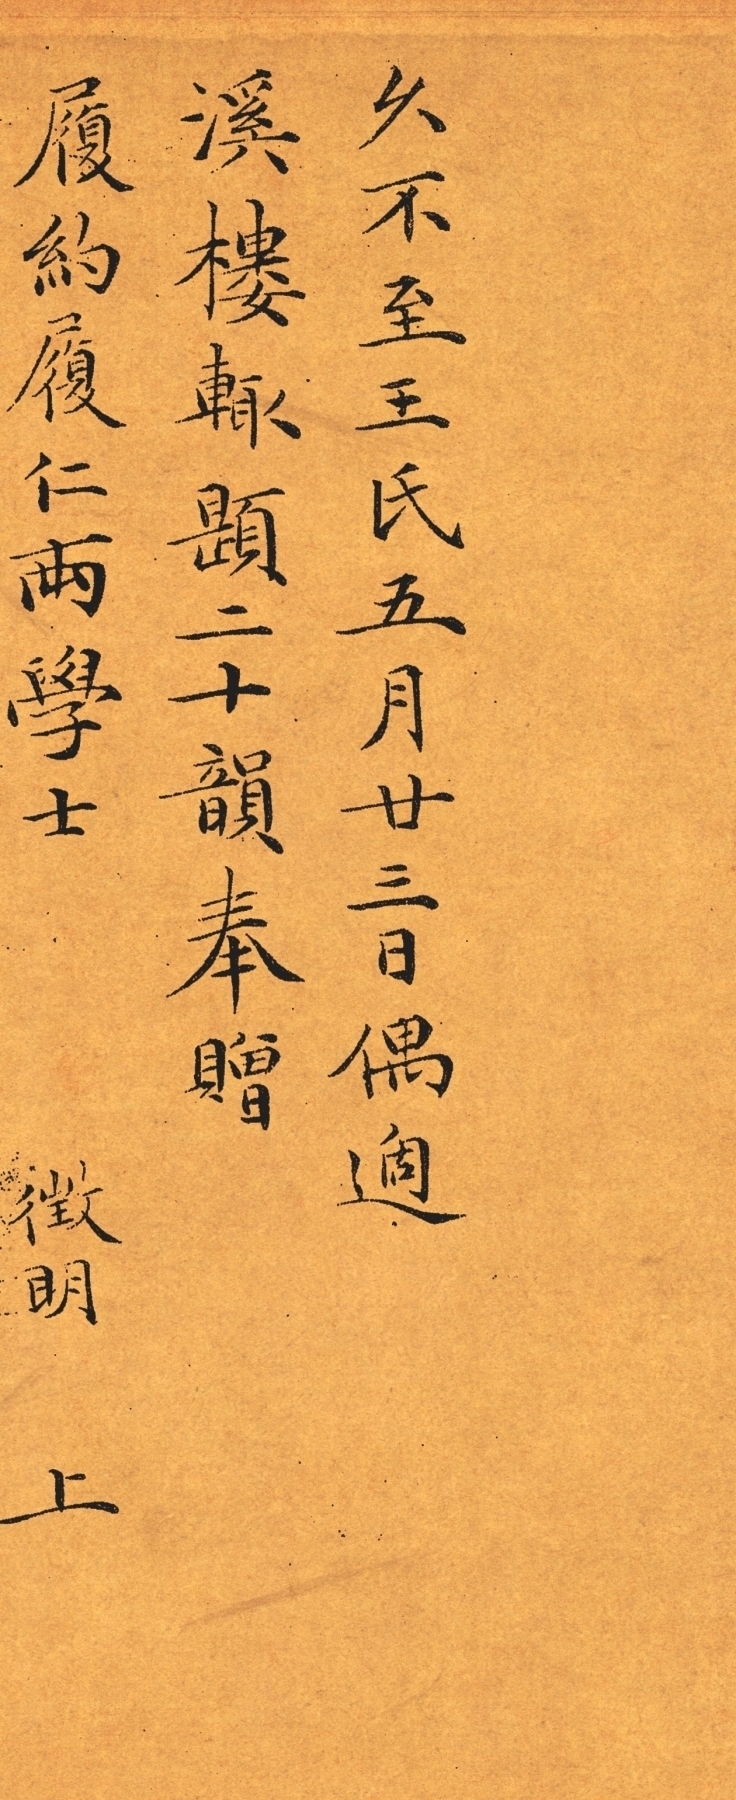 久不至王氏五月廿三日偶過
溪樓輙題二十韻奉贈
履約履仁兩學士
徵明
上